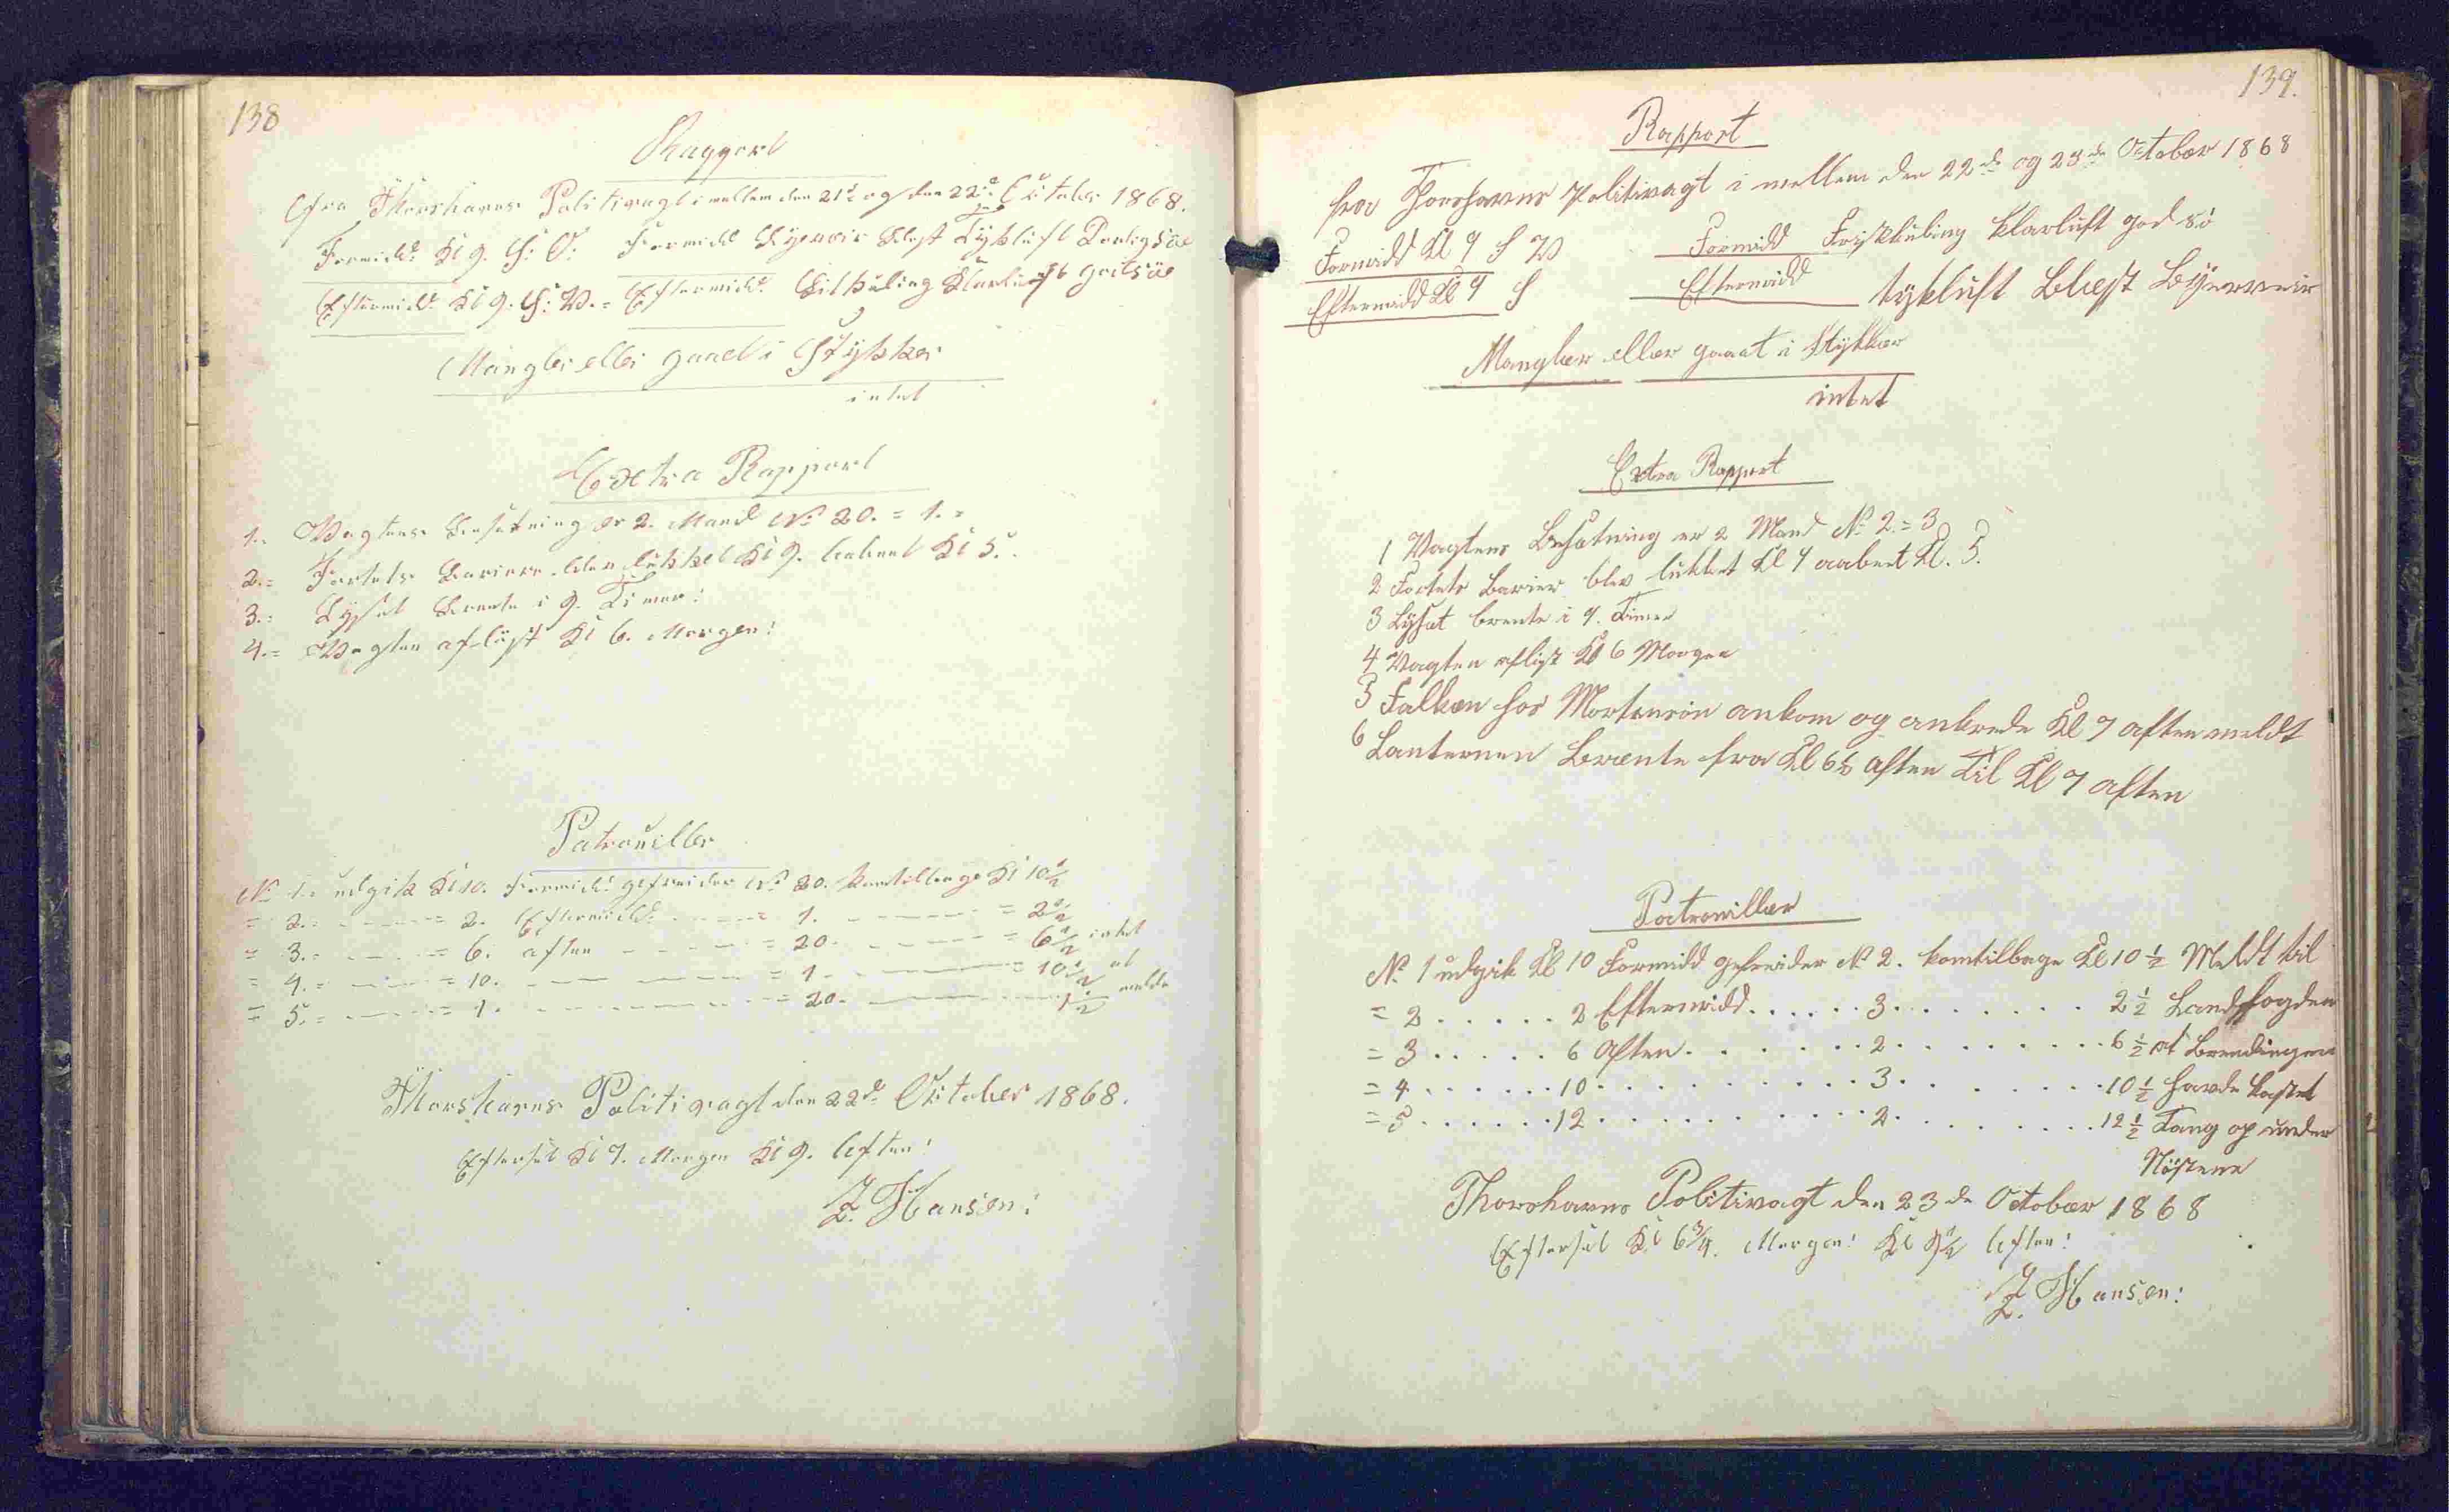 138
Rapport
fra Thorshavns Politivagt imellem den 21d og den 22de October 1868.
Formidd: Kl 9. S: O: Formidd Byeveir Blæst Tykluft Daarligsöe
Eftermidd: Kl 9. S: V. = Eftermidd: Lit Kuling Klarluft godtsöe
Mangler eller gaaet i Stykker
intet
Extra Rapport
1. Vagtens Besætning er 2. Mand No 20. = 1. =
2. = Fortets Bariere blev lukket Kl 9. aabent Kl 5.
3. = Lyset Brænte i 9. Timer:
4. = Vagten aflöst Kl 6. Morgen:
Patrouiller
No 1. udgik Kl 10. Formidd: gefreider No 20. komtilbage Kl 10½
= 2. - - - = 2. Eftermidd: - - - = 1. - - - = 2½
= 3. - - - = 6. aften - - - = 20. - - - = 6½ intet
= 4. = - - - = 10. - - - = 1. - - - 10½ at
= 5. = - - - = 1. - - - = 20. - - - 1½ melde
Thorshavns Politivagt den 22de October 1868.
Efterset Kl 7. Morgen Kl 9. Aften:
Z. Hansen:
139.
Rapport
fra Thorshavns Politivagt i mellem den 22de og 23de October 1868
Formidd Kl 9 S V Formidd Friskkuling Klarluft god sö
Eftermidd Kl 9 S Eftermidd tykluft Blæst Byerveir
Mangler eller gaaet i Stykker
intet
Extra Rapport
1 Vagtens Besætning er 2 Mand No 2. = 3
2 Fortets Barier blev lukket Kl 9 aabent Kl. 5.
3 Lyset brente i 9. Timer
4 Vagten afligst Kl 6 Morgen
5 Falken hos Mortensön ankom og ankrede Kl 7 aften meldt
6 Lanternen Brænte fra Kl 6½ aften Til Kl 7 aften
Patrouiller
No 1 udgik Kl 10 Formidd gefreider No 2. komtilbage Kl 10½ Meldt til
= 2 . . . . . 2 Eftermidd . . . . . 3 . . . . . . . 2½ Landfogden
= 3 . . . . . 6 Aften . . . . . . 2 . . . . . . . . 6½ at Brendingen
= 4 . . . . . 10 . . . . . . . . 3 . . . . . . . 10½ havde kastet
= 5 . . . . . 12 . . . . . . . . 2 . . . . . . . 12½ Tang op under
Nöstene
Thorshavns Politivagt den 23de October 1868
Efterset Kl 6¾. Morgen: Kl 9½ Aften:
Z. Hansen: